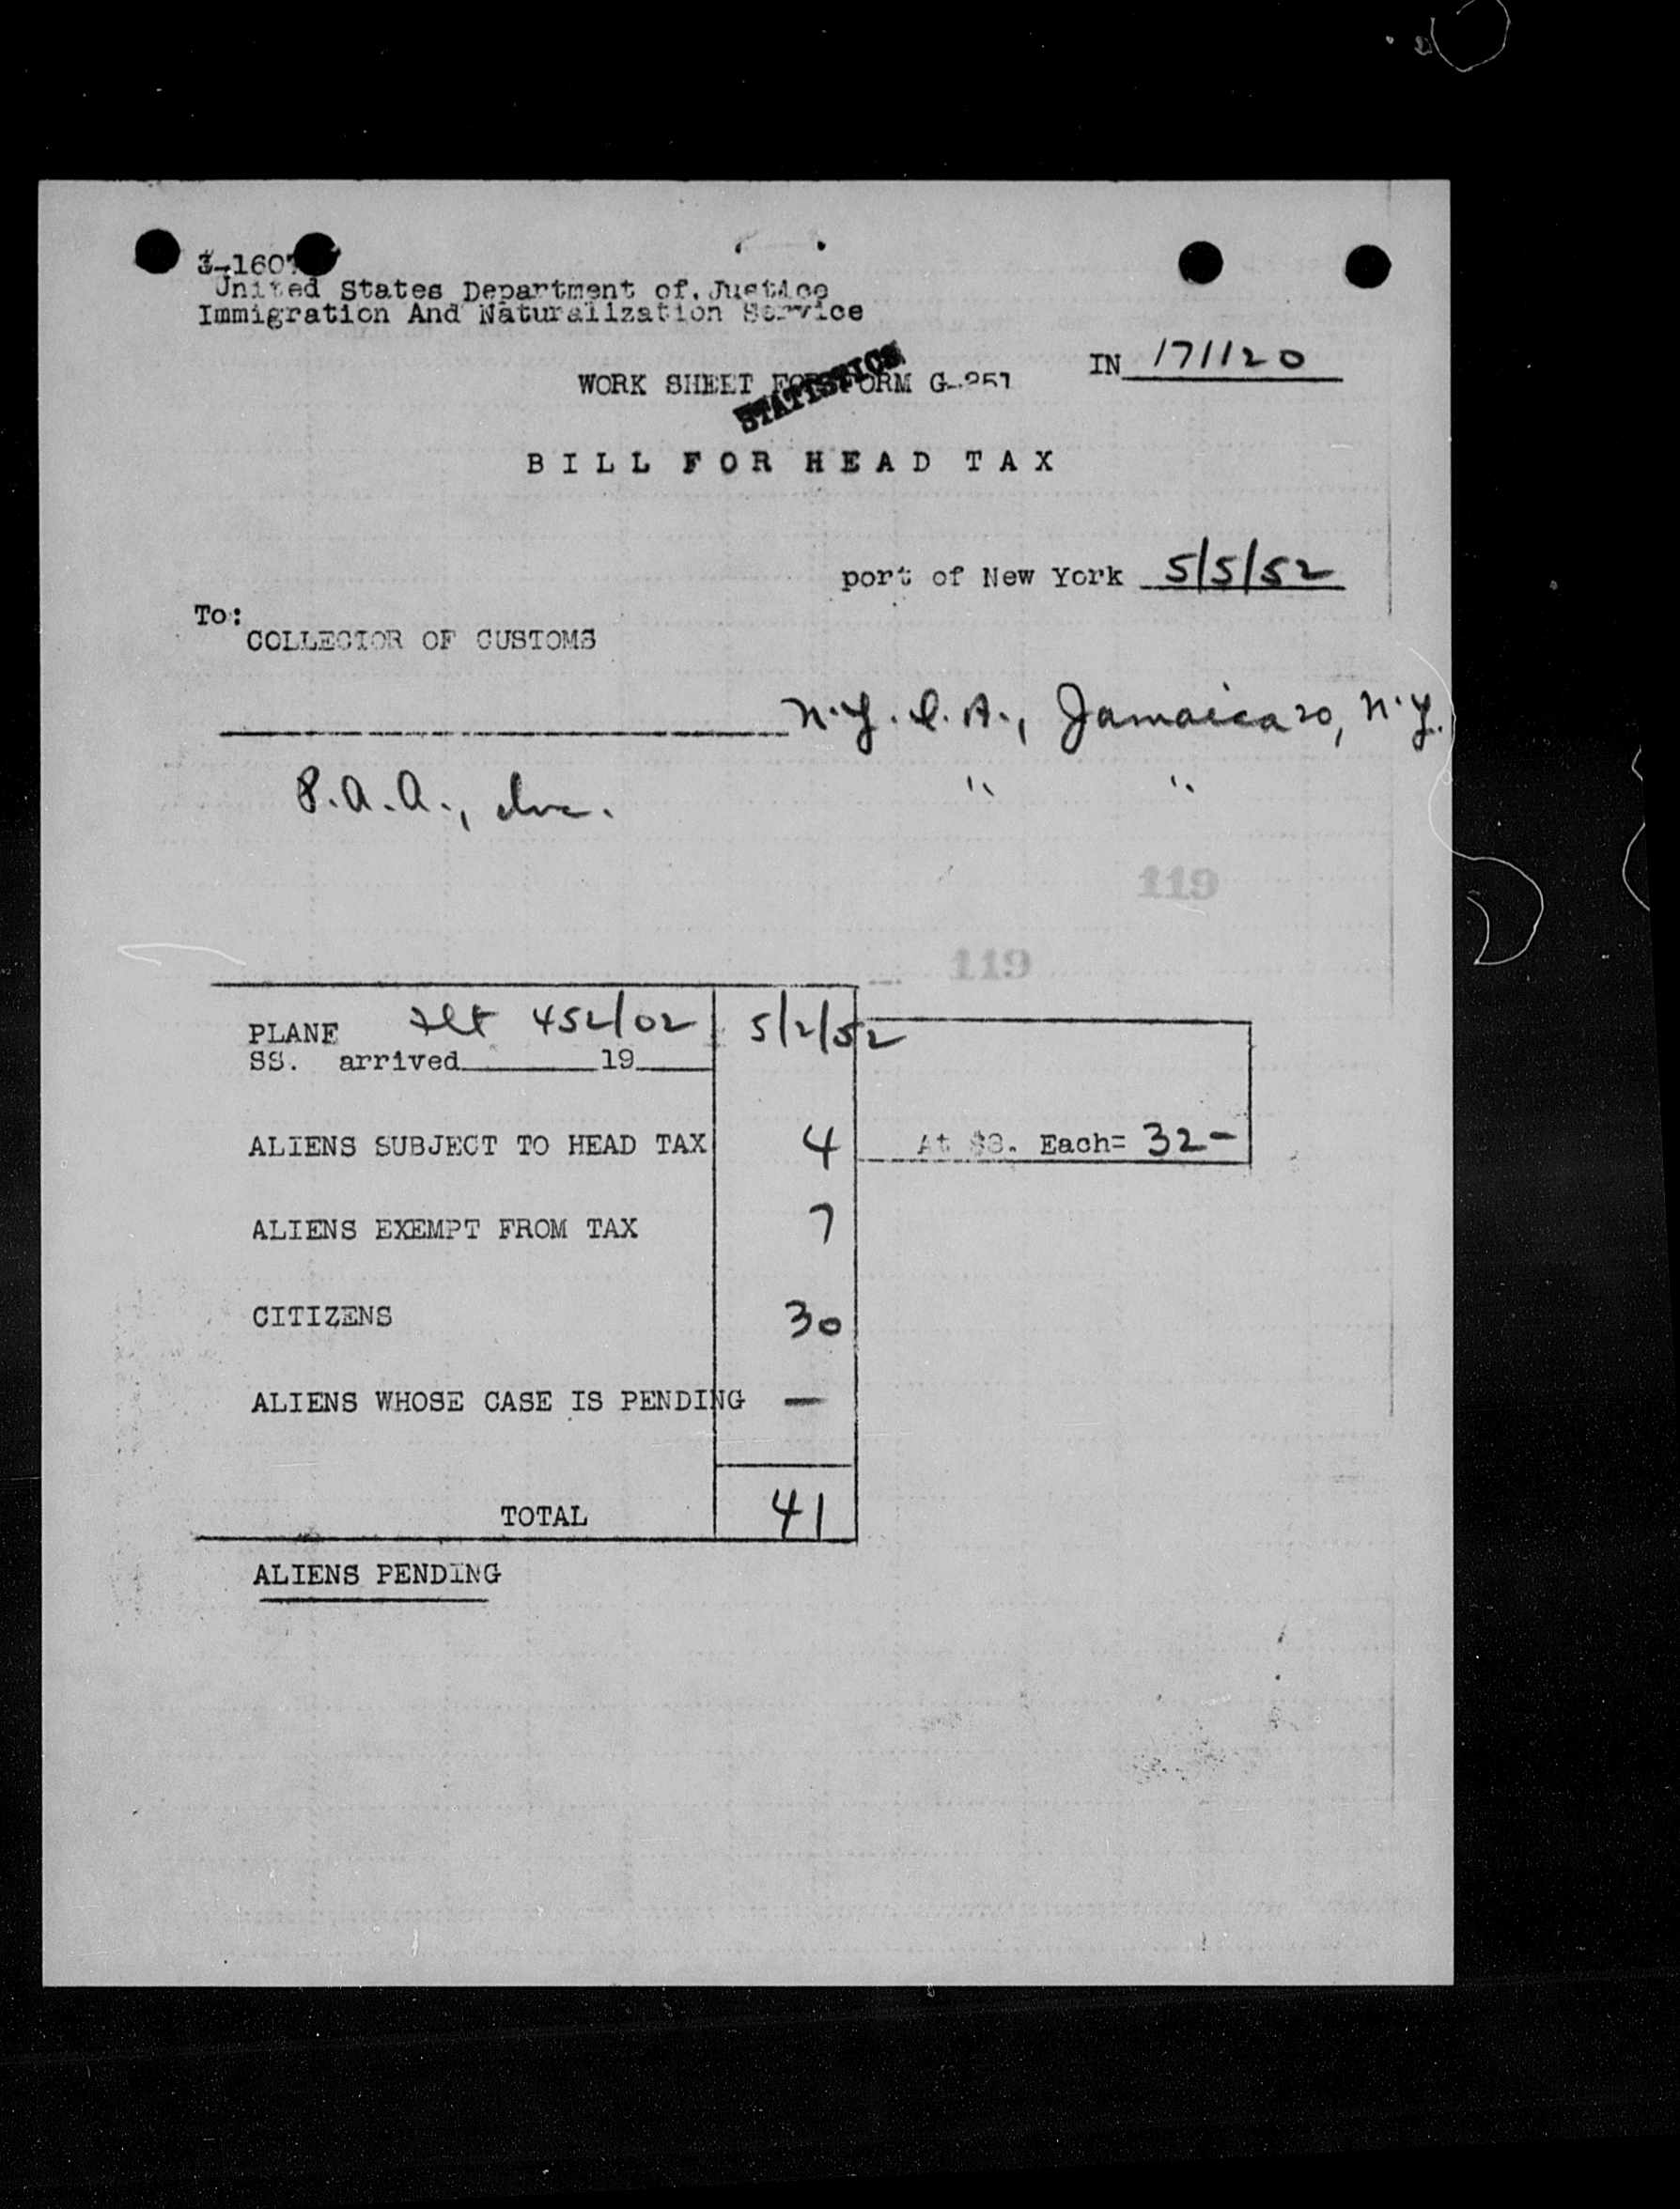 3-1607
United States Department of Justice
Immigration And Naturalization Service
IN 171120
WORK SHEET FOR FORM G-251
STATISTICS
BILL FOR HEAD TAX
port of New York 5/5/52
To:
COLLECTOR OF CUSTOMS
N.Y. I. A., Jamaica 20, N.Y.
P.A.A., Inc. " "
119
119
PLANE Flt 452/02 5/2/52
SS. arrived 19
ALIENS SUBJECT TO HEAD TAX 4 At $8. Each= 32-
ALIENS EXEMPT FROM TAX 7
CITIZENS 30
ALIENS WHOSE CASE IS PENDING —
TOTAL 41
ALIENS PENDING